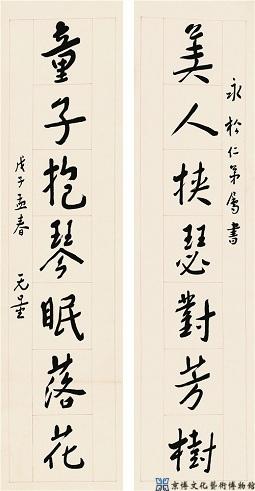 永松仁弟属書
美人挟瑟對芳樹
童子抱琴眠落花
戊子孟春 无量
京博文化藝術博物館